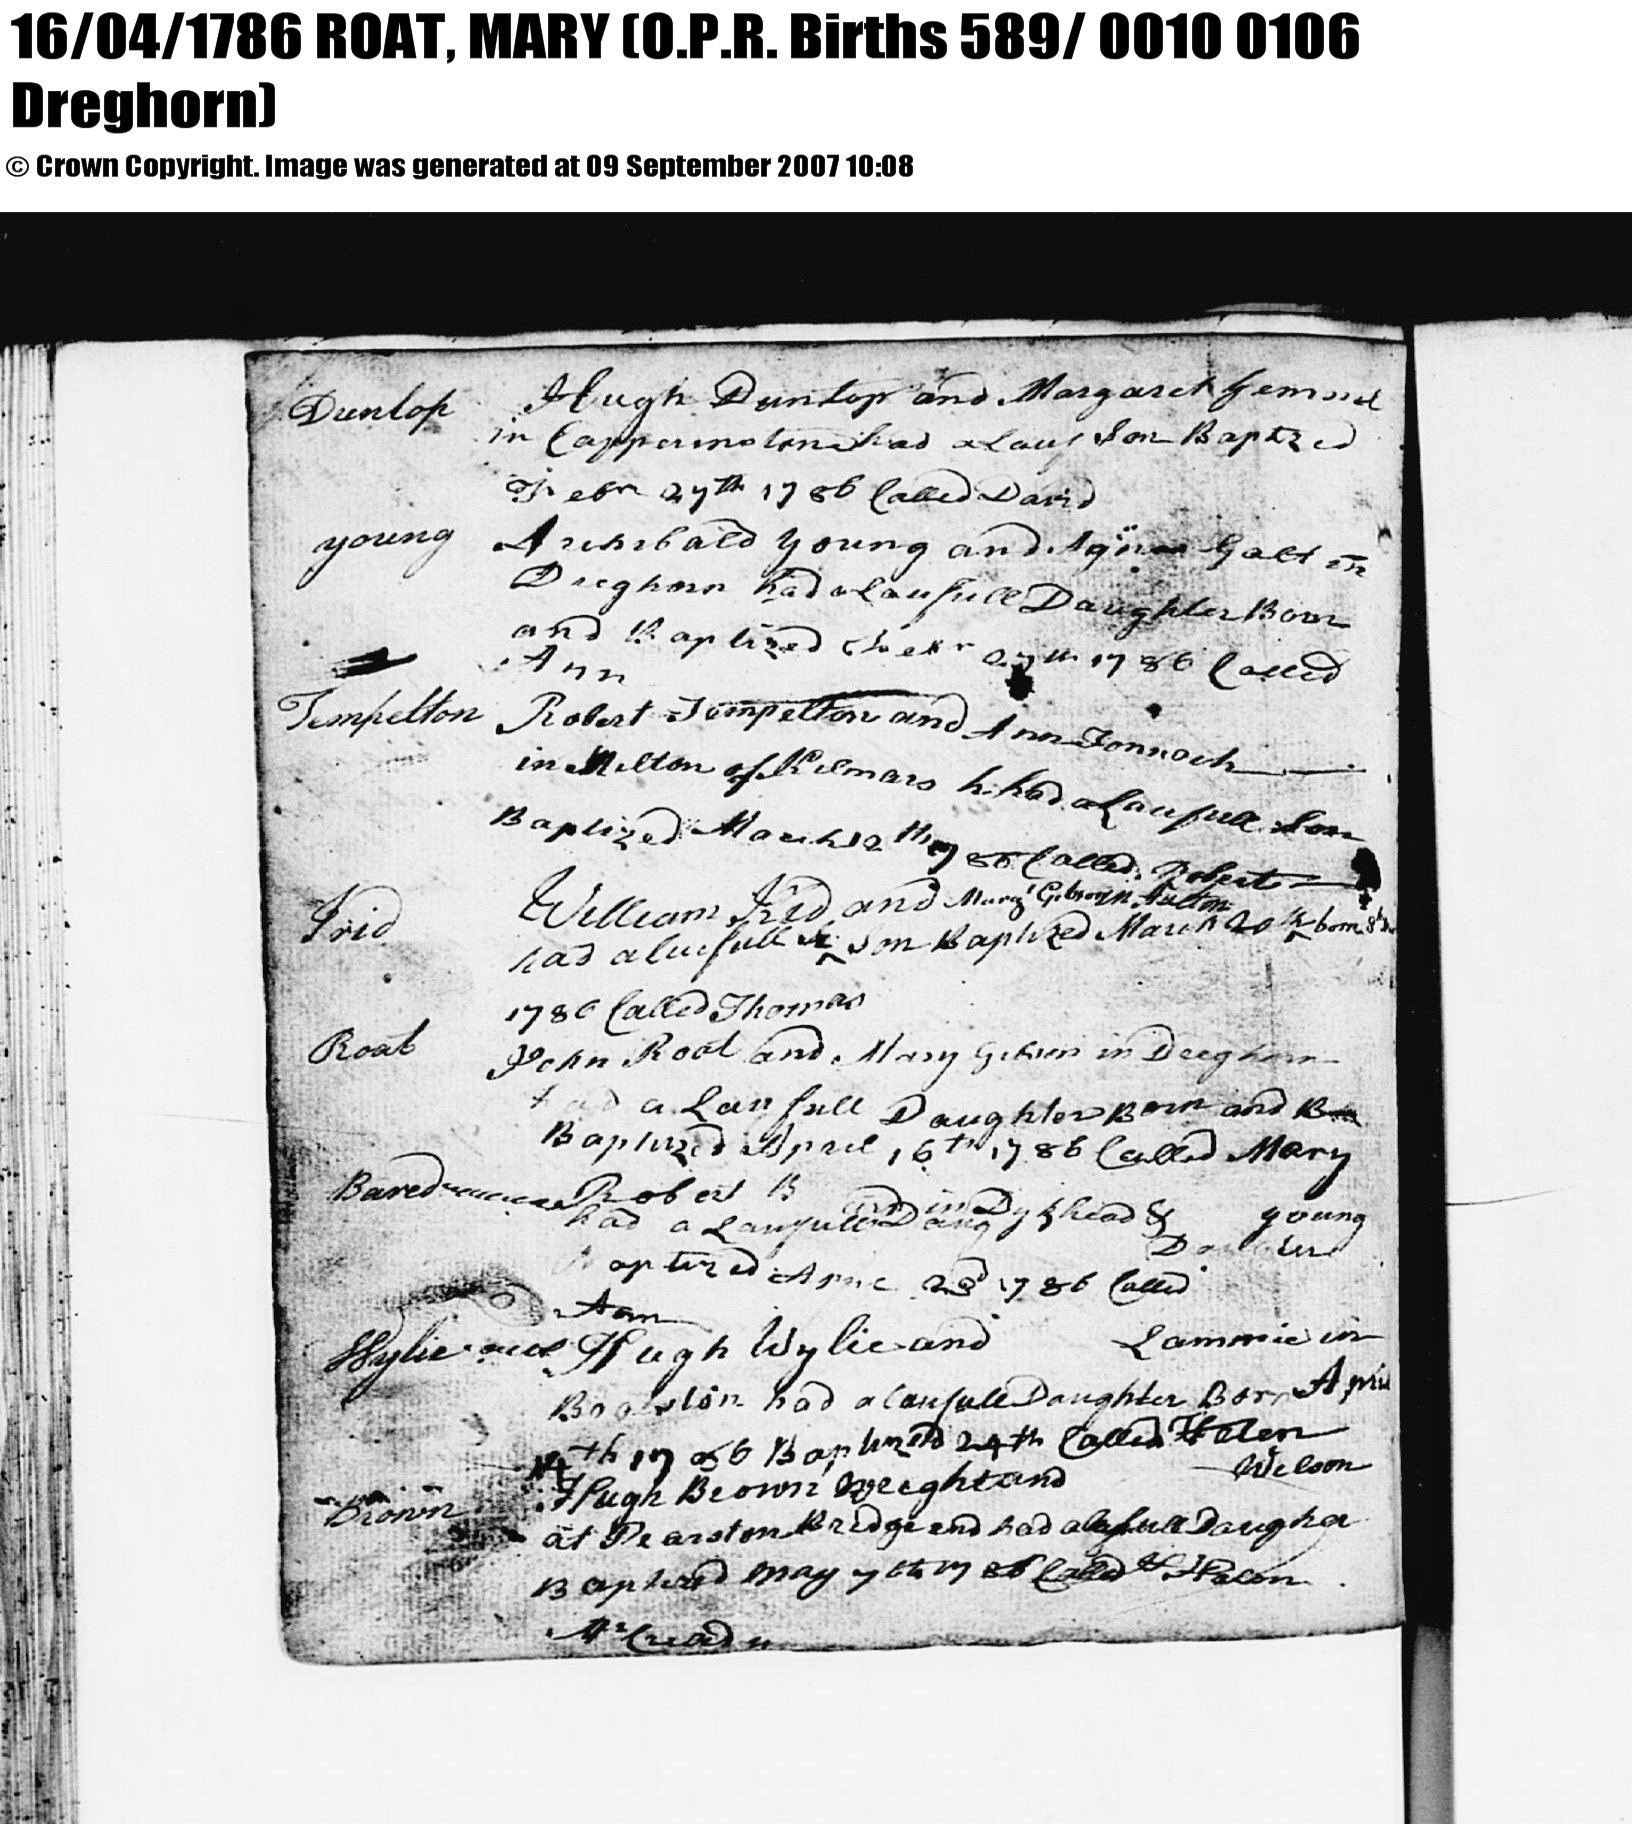 16/04/1786 ROAT, MARY (O.P.R. Births 589/ 0010 0106
Dreghorn)
© Crown Copyright. Image was generated at 09 September 2007 10:08
Dunlop Hugh Dunlop and Margaret Gemmel
in had a Lauf Son Baptized
Febr 27th 1786 Called David
young Archibald Young and Galt in
Dreghorn had a Laufull Daughter Born
and Baptized Febr 27th 1786 Called
Ann
Tempelton Robert Tempelton and Ann
in Milton of Kilmars had a Laufull Son
Baptized March 12th 1786 Called Robert
Frid William Frid and Marg' Gibson in
had a lufull Son Baptized March 20th born 8th
1786 Called Thomas
Roat John Roat and Mary Gibson in Dreghorn
had a Laufull Daughter Born and B
Baptized April 16th 1786 Called Mary
Bared Robert B and in Dykhead & young
had a Laufull Daug
Baptized April 23d 1786 Called
Ann
Wylie Hugh Wylie and Lammie in
had a laufull Daughter Born April
14th 1786 Baptized 24th Called Helen
Brown Hugh Brown Wreight and Welson
at Pearston Bridgeend had a lafull Daugher
Baptized May 7th 1786 Called Helon
McCready